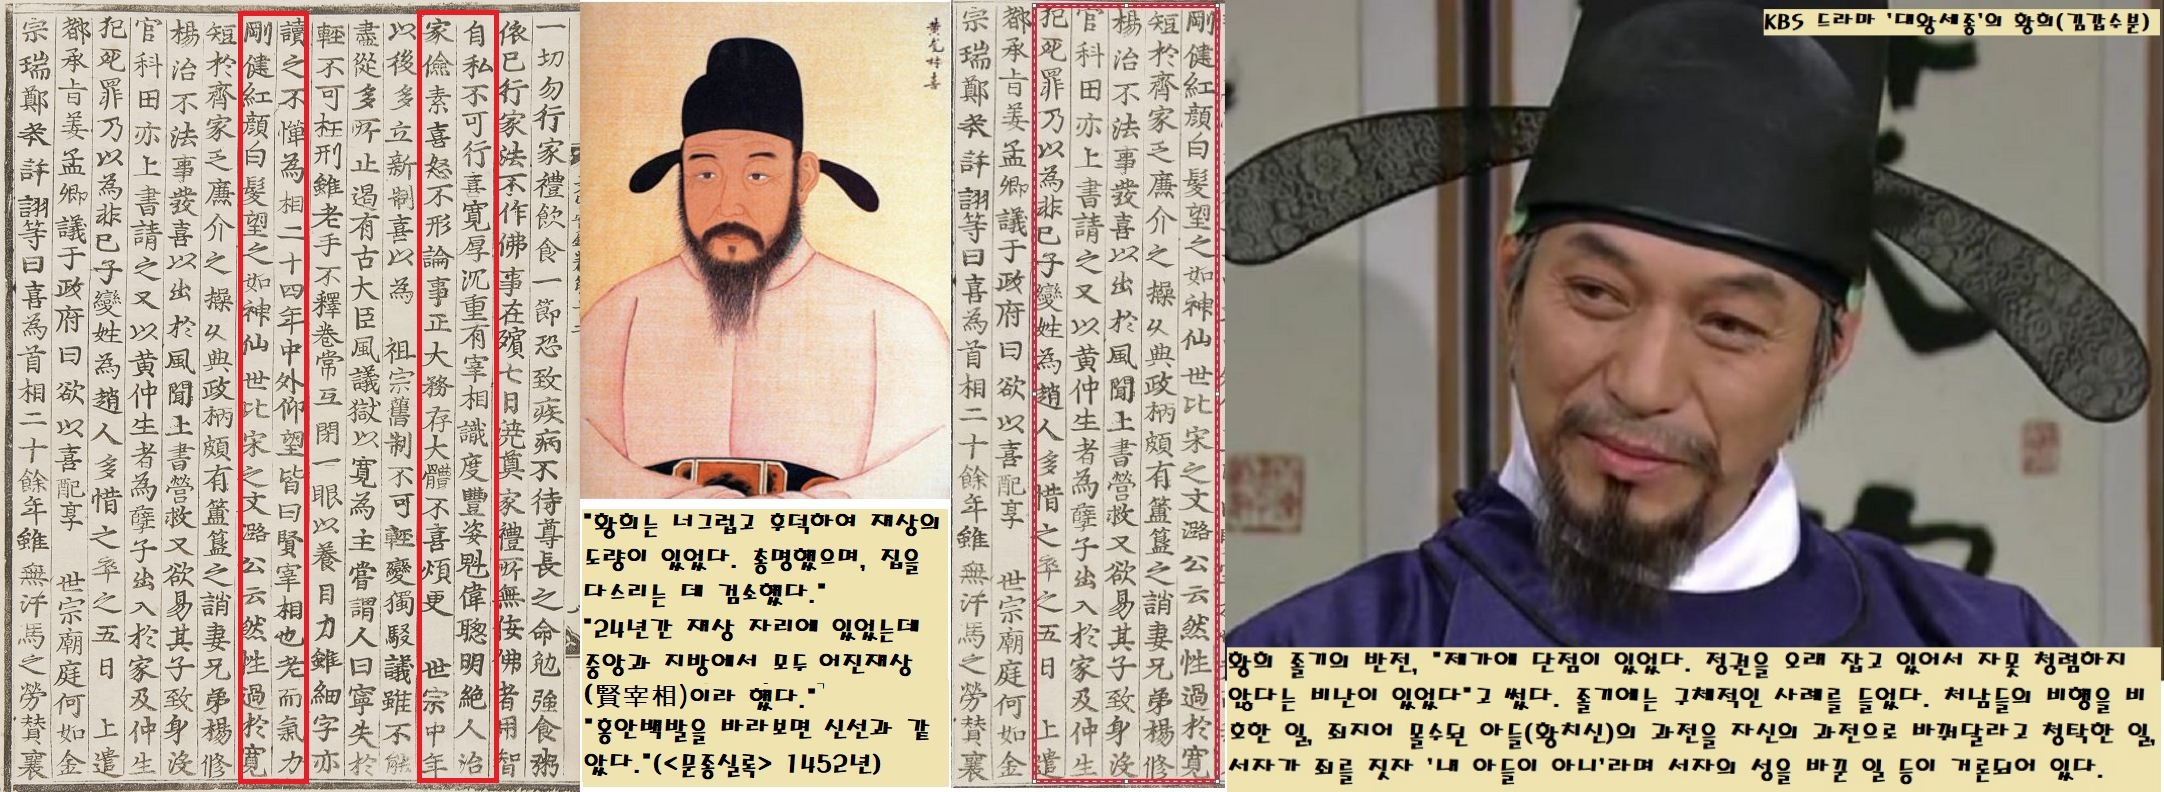 一切勿行家禮飮食一節恐致疾病不待尊長之命勉強食粥
依已行家法不作佛事在殯七日澆奠家禮所無侫佛者用智
自私不可行喜寬厚沉重有宰相識度豐姿魁偉聰明絶人治
家儉素喜怒不形論事正大務存大體不喜煩更 世宗中年
以後多立新制喜以為 祖宗舊制不可輕變獨駁議雖不能
盡從多所止遏有古大臣風議獄以寬為主嘗謂人曰寧失於
輕不可枉刑雖老手不釋卷常互閉一眼以養目力雖細字亦
讀之不憚為相二十四年中外仰望皆曰賢宰相也老而氣力
剛健紅顔白髮望之如神仙世比宋之文潞公云然性過於寬
短於齊家乏廉介之操久典政柄頗有簠簋之誚妻兄弟楊修
楊治不法事發喜以出於風聞上書營救又欲易其子致身沒
官科田亦上書請之又以黄仲生者為孽子出入於家及仲生
犯死罪乃以為非己子變姓為趙人多惜之卒之五日 上遣
都承旨姜孟卿議于政府曰欲以喜配享 世宗廟庭何如金
宗瑞鄭苯許詡等曰喜為首相二十餘年雖無汗馬之勞贊襄
黄尨村喜
"황희는 너그럽고 후덕하여 재상의
도량이 있었다. 총명했으며, 집을
다스리는 데 검소했다."
"24년간 재상 자리에 있었는데
중앙과 지방에서 모두 어진재상
(賢宰相)이라 했다."
"홍안백발을 바라보면 신선과 같
았다."(<문종실록> 1452년)
剛健紅顔白髮望之如神仙世比宋之文潞公云然性過於寬
短於齊家乏廉介之操久典政柄頗有簠簋之誚妻兄弟楊修
楊治不法事發喜以出於風聞上書營救又欲易其子致身沒
官科田亦上書請之又以黄仲生者為孽子出入於家及仲生
犯死罪乃以為非己子變姓為趙人多惜之卒之五日 上遣
都承旨姜孟卿議于政府曰欲以喜配享 世宗廟庭何如金
宗瑞鄭苯許詡等曰喜為首相二十餘年雖無汗馬之勞贊襄
KBS 드라마 '대왕세종'의 황희(김갑수분)
황희 졸기의 반전, "제가에 단점이 있었다. 정권을 오래 잡고 있어서 자못 청렴하지
않다는 비난이 있었다"고 썼다. 졸기에는 구체적인 사례를 들었다. 처남들의 비행을 비
호한 일, 죄지어 몰수된 아들(황치신)의 과전을 자신의 과전으로 바꿔달라고 청탁한 일,
서자가 죄를 짓자 '내 아들이 아니'라며 서자의 성을 바꾼 일 등이 거론되어 있다.